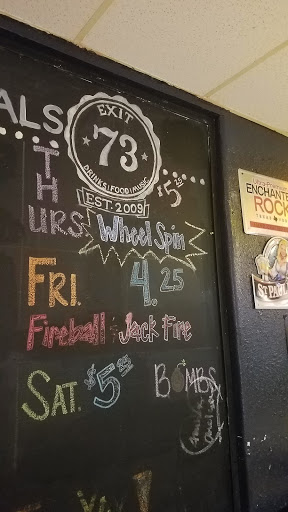 ALS
EXIT
73
DRINKS FOOD MUSIC
EST. 2009
$5.25
THURS
Wheel Spin
FRI. 4.25
Fireball Jack Fire
SAT. $5.25 BOMBS
ENCHANTED
ROCK